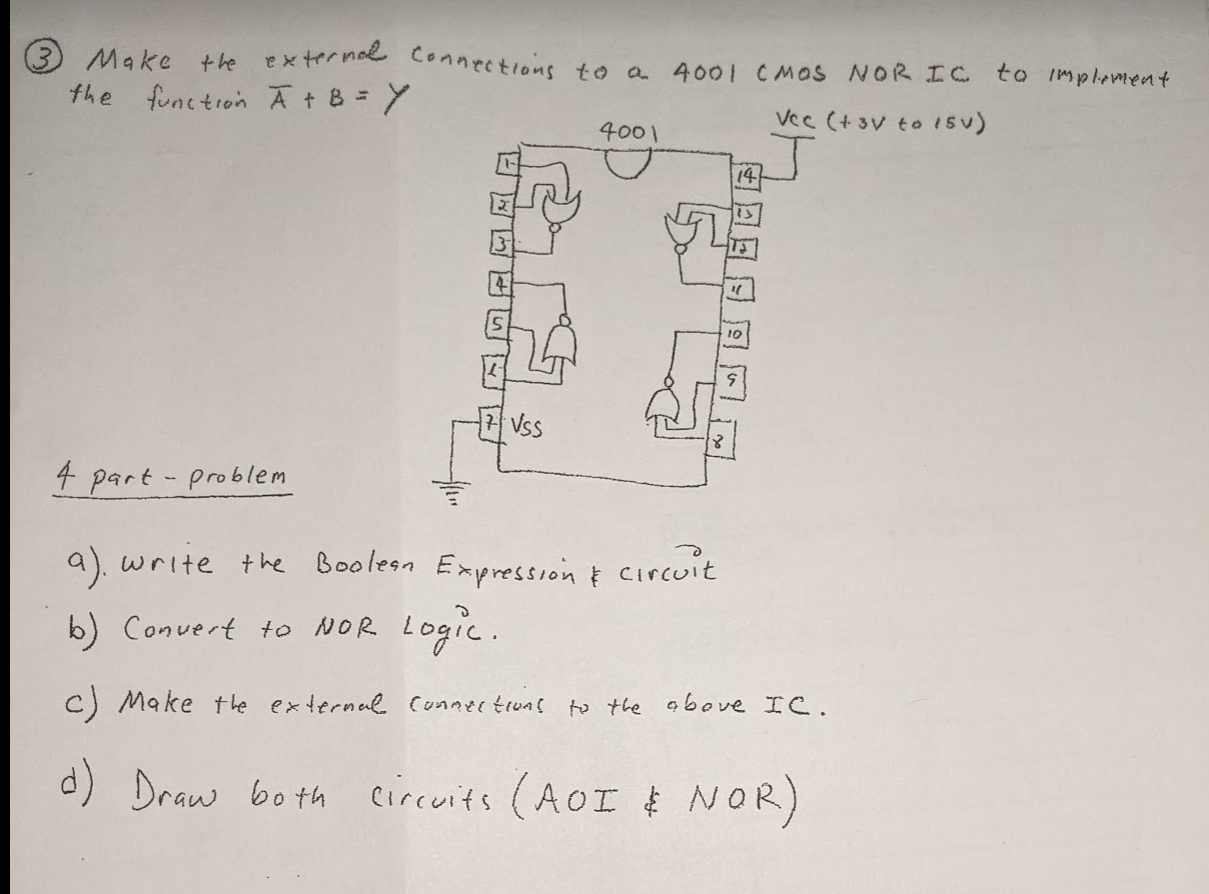 ③ Make the external connections to a 4001 CMOS NOR IC to implement
the function A̅ + B = Y
Vcc (+3V to 15V)
4001
1
14
2
13
3
12
4
11
5
10
6
9
7 VSS
8
4 part - problem
a). write the Boolean Expression & circuit
b) Convert to NOR Logic.
c) Make the external connections to the above IC.
d) Draw both circuits (AOI & NOR)